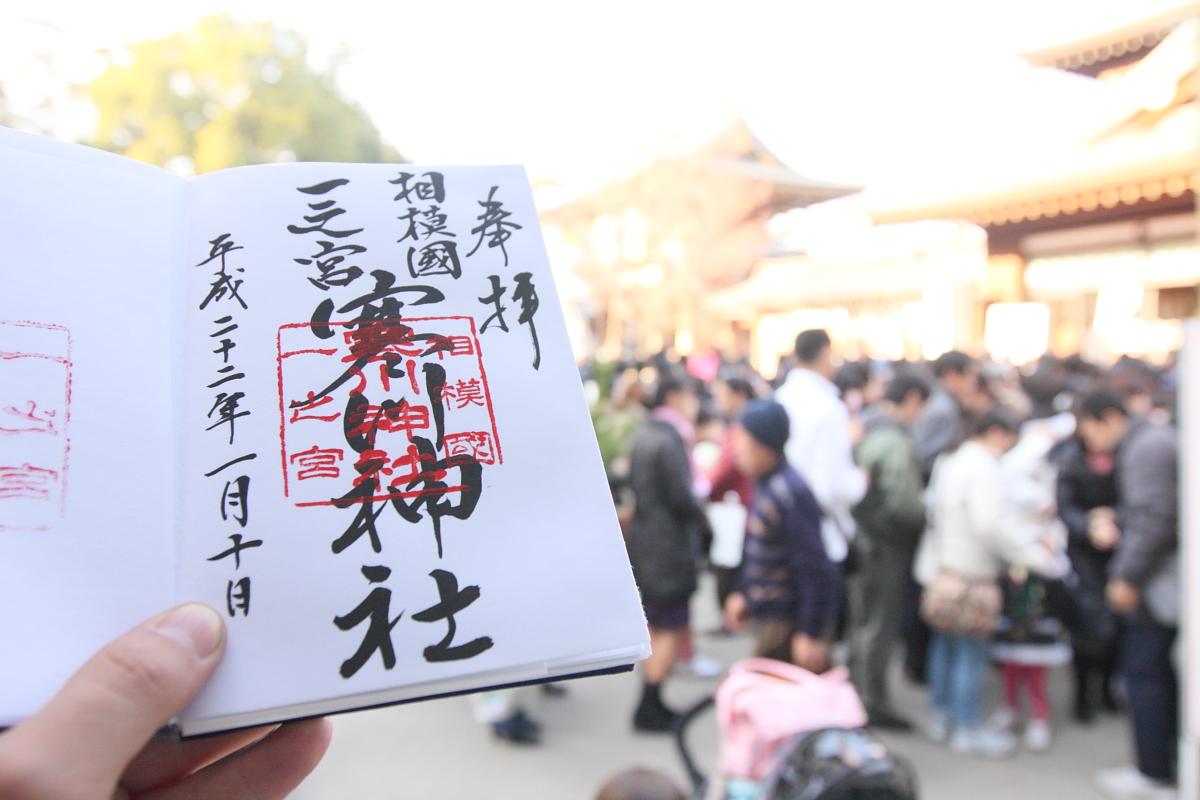 奉拝
相模國
一之宮
寒川神社
平成二十二年一月十日
相模國
寒川神社
一之宮